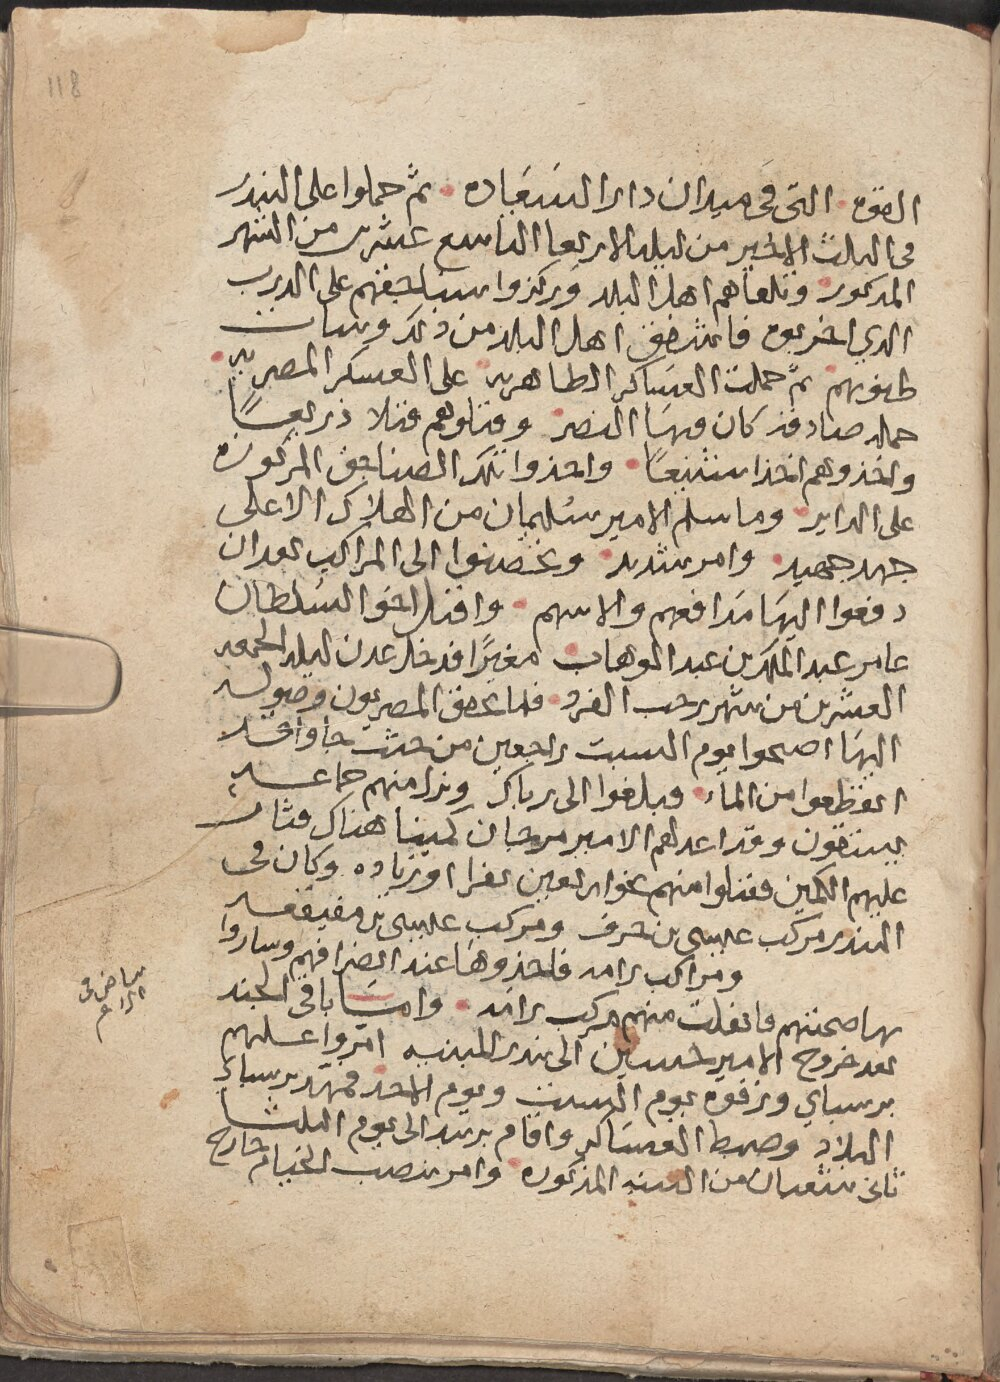 118
القوه التى فى ميدان دار السعاده ثم حملوا على البندر
فى الثلث الاخير من ليله الاربعا التاسع عشر من الشهر
المذكور وتلقاهم اهل البلد وركزوا سناجقهم على الدرب
الذي اخربوه فا اهل البلد من ذلك وسات
ظنونهم ثم حملت العساكر الطاهريه على العسكر المصريه
حمله صادقه كان فيها النصر وقتلوهم قتلا ذريعًا
واخذوهم اخذا شنيعًا واخذوا تلك الصناجق المركوزه
على الداير وما سلم الامير سليمان من الهلاك الا على
جهد جهيد وامر شديد وتحصنوا الى المراكب بعد ان
دفعوا اليها مدافعهم والاسهم واقبل اخو السلطان
عامر عبد الملك بن عبد الوهاب مغيرًا فدخل عدن ليله الجمعه
العشرين من شهر رجب الفرد فلما تحقق المصريون وصوله
اليها اصبحوا يوم السبت راجعين من حيث جاوا
انقطعوا من الماء فبلغوا الى رباك ونزل منهم جماعه
يستقون وقد اعد لهم الامير مرجان كمينا هناك فثار
عليهم الكمين فقتلوا منهم نحو اربعين نفرا او زياده وكان فى
البندر مركب عيسى بن حرف ومركب عيسى بن
ومراكب برامه فاخذوها عند انصرافهم وساروا
بها صحبتهم فانفلت منهم مركب برامه وامسا باقى الجند
بعد خروج الامير حسين الى بندر المدنيه امروا عليهم
برسباي ونزقوه يوم السبت ويوم الاحد فمهد برسباي
البلاد وضبط العساكر واقام بزبيد الى يوم الثلثا
ثانى شعبان من السنه المذكوره وامر بنصب الخيام خارج
بياض فى
الام